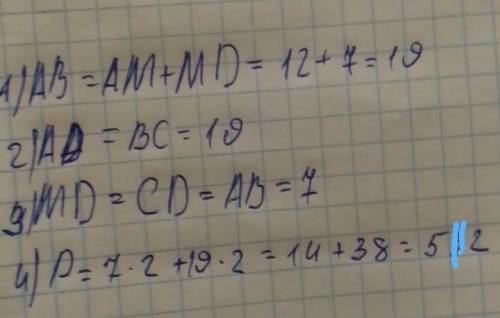 1) AB = AM + MD = 12 + 7 = 19
2) AD = BC = 19
3) MD = CD = AB = 7
4) P = 7 · 2 + 19 · 2 = 14 + 38 = 52